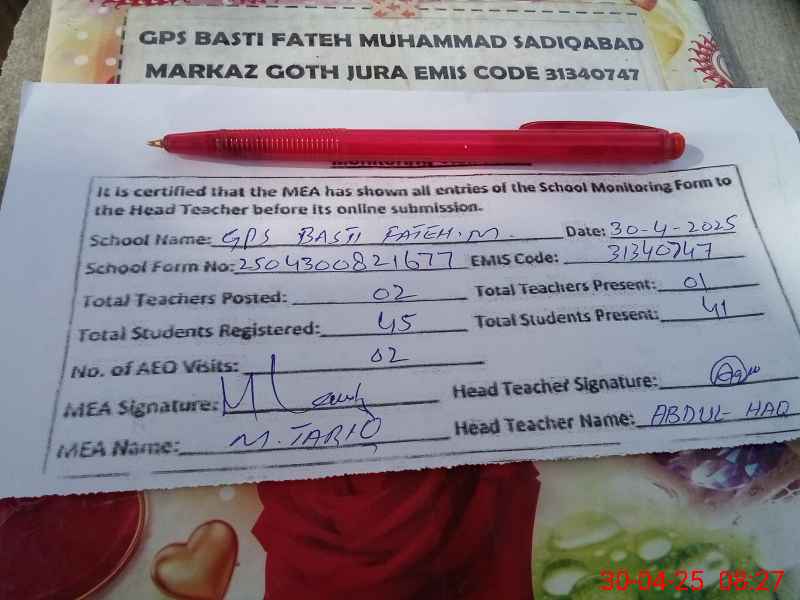 GPS BASTI FATEH MUHAMMAD SADIQABAD
MARKAZ GOTH JURA EMIS CODE 31340747
It is certified that the MEA has shown all entries of the School Monitoring Form to
the Head Teacher before its online submission.
School Name: GPS BASTI FATEH.M. Date: 30-4-2025
School Form No: 2504300821677 EMIS Code: 31340747
Total Teachers Posted: 02 Total Teachers Present: 01
Total Students Registered: 45 Total Students Present: 41
No. of AEO Visits: 02
MEA Signature: Head Teacher Signature:
MEA Name: M. TARIQ Head Teacher Name: ABDUL-HAQ
30-04-25 08:27